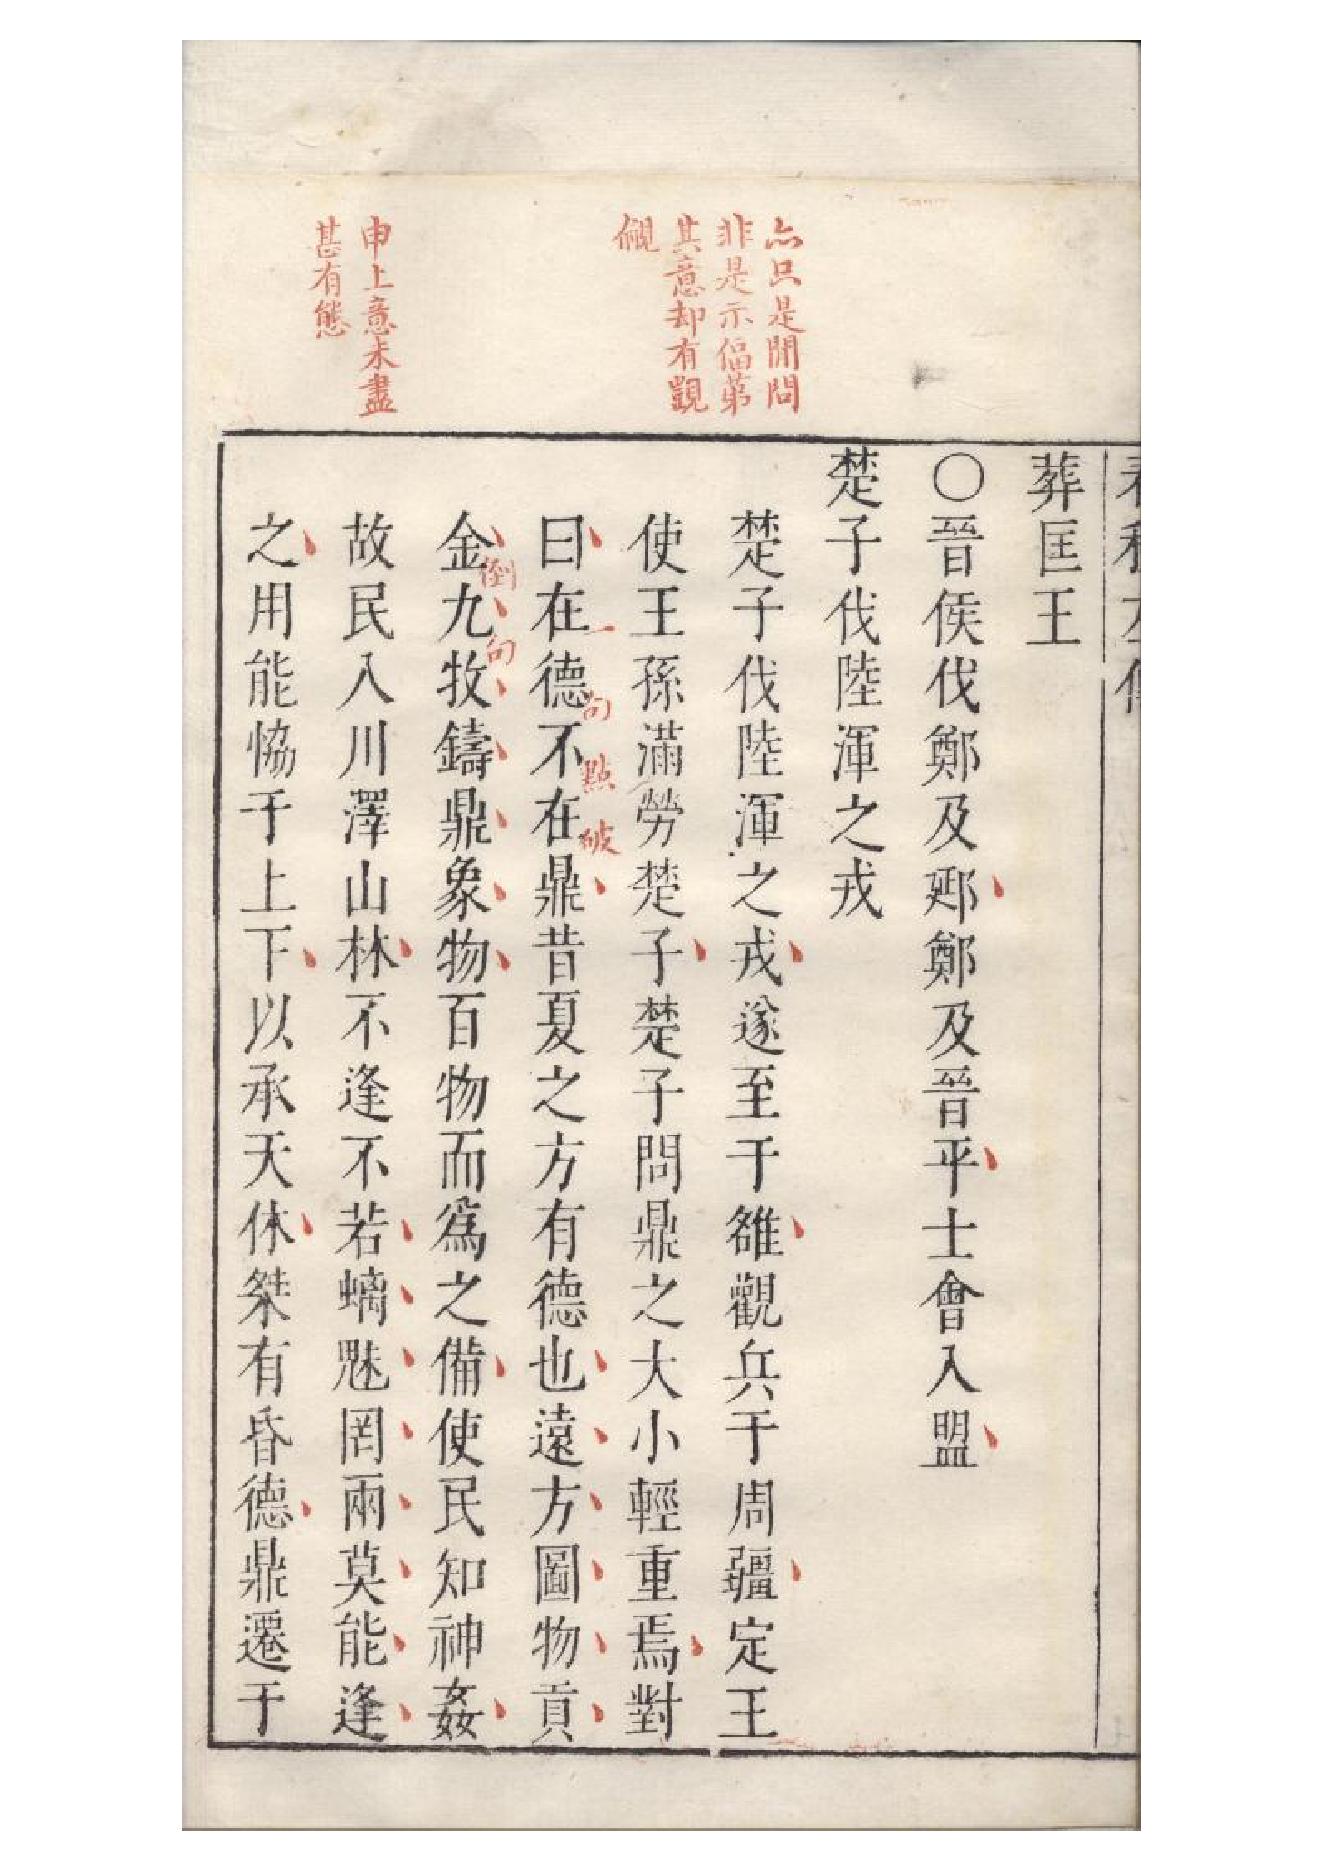 春秋左傳
葬匡王
○晉侯伐鄭及郔鄭及晉平士會入盟
楚子伐陸渾之戎
楚子伐陸渾之戎遂至于雒觀兵于周疆定王
使王孫滿勞楚子楚子問鼎之大小輕重焉對
曰在德不在鼎昔夏之方有德也遠方圖物貢
金九牧鑄鼎象物百物而爲之備使民知神姦
故民入川澤山林不逢不若螭魅罔兩莫能逢
之用能恊于上下以承天休桀有昏德鼎遷于
亦只是閒問
非是示偪第
其意却有覬
覦
一句點破
倒句
申上意未盡
甚有態